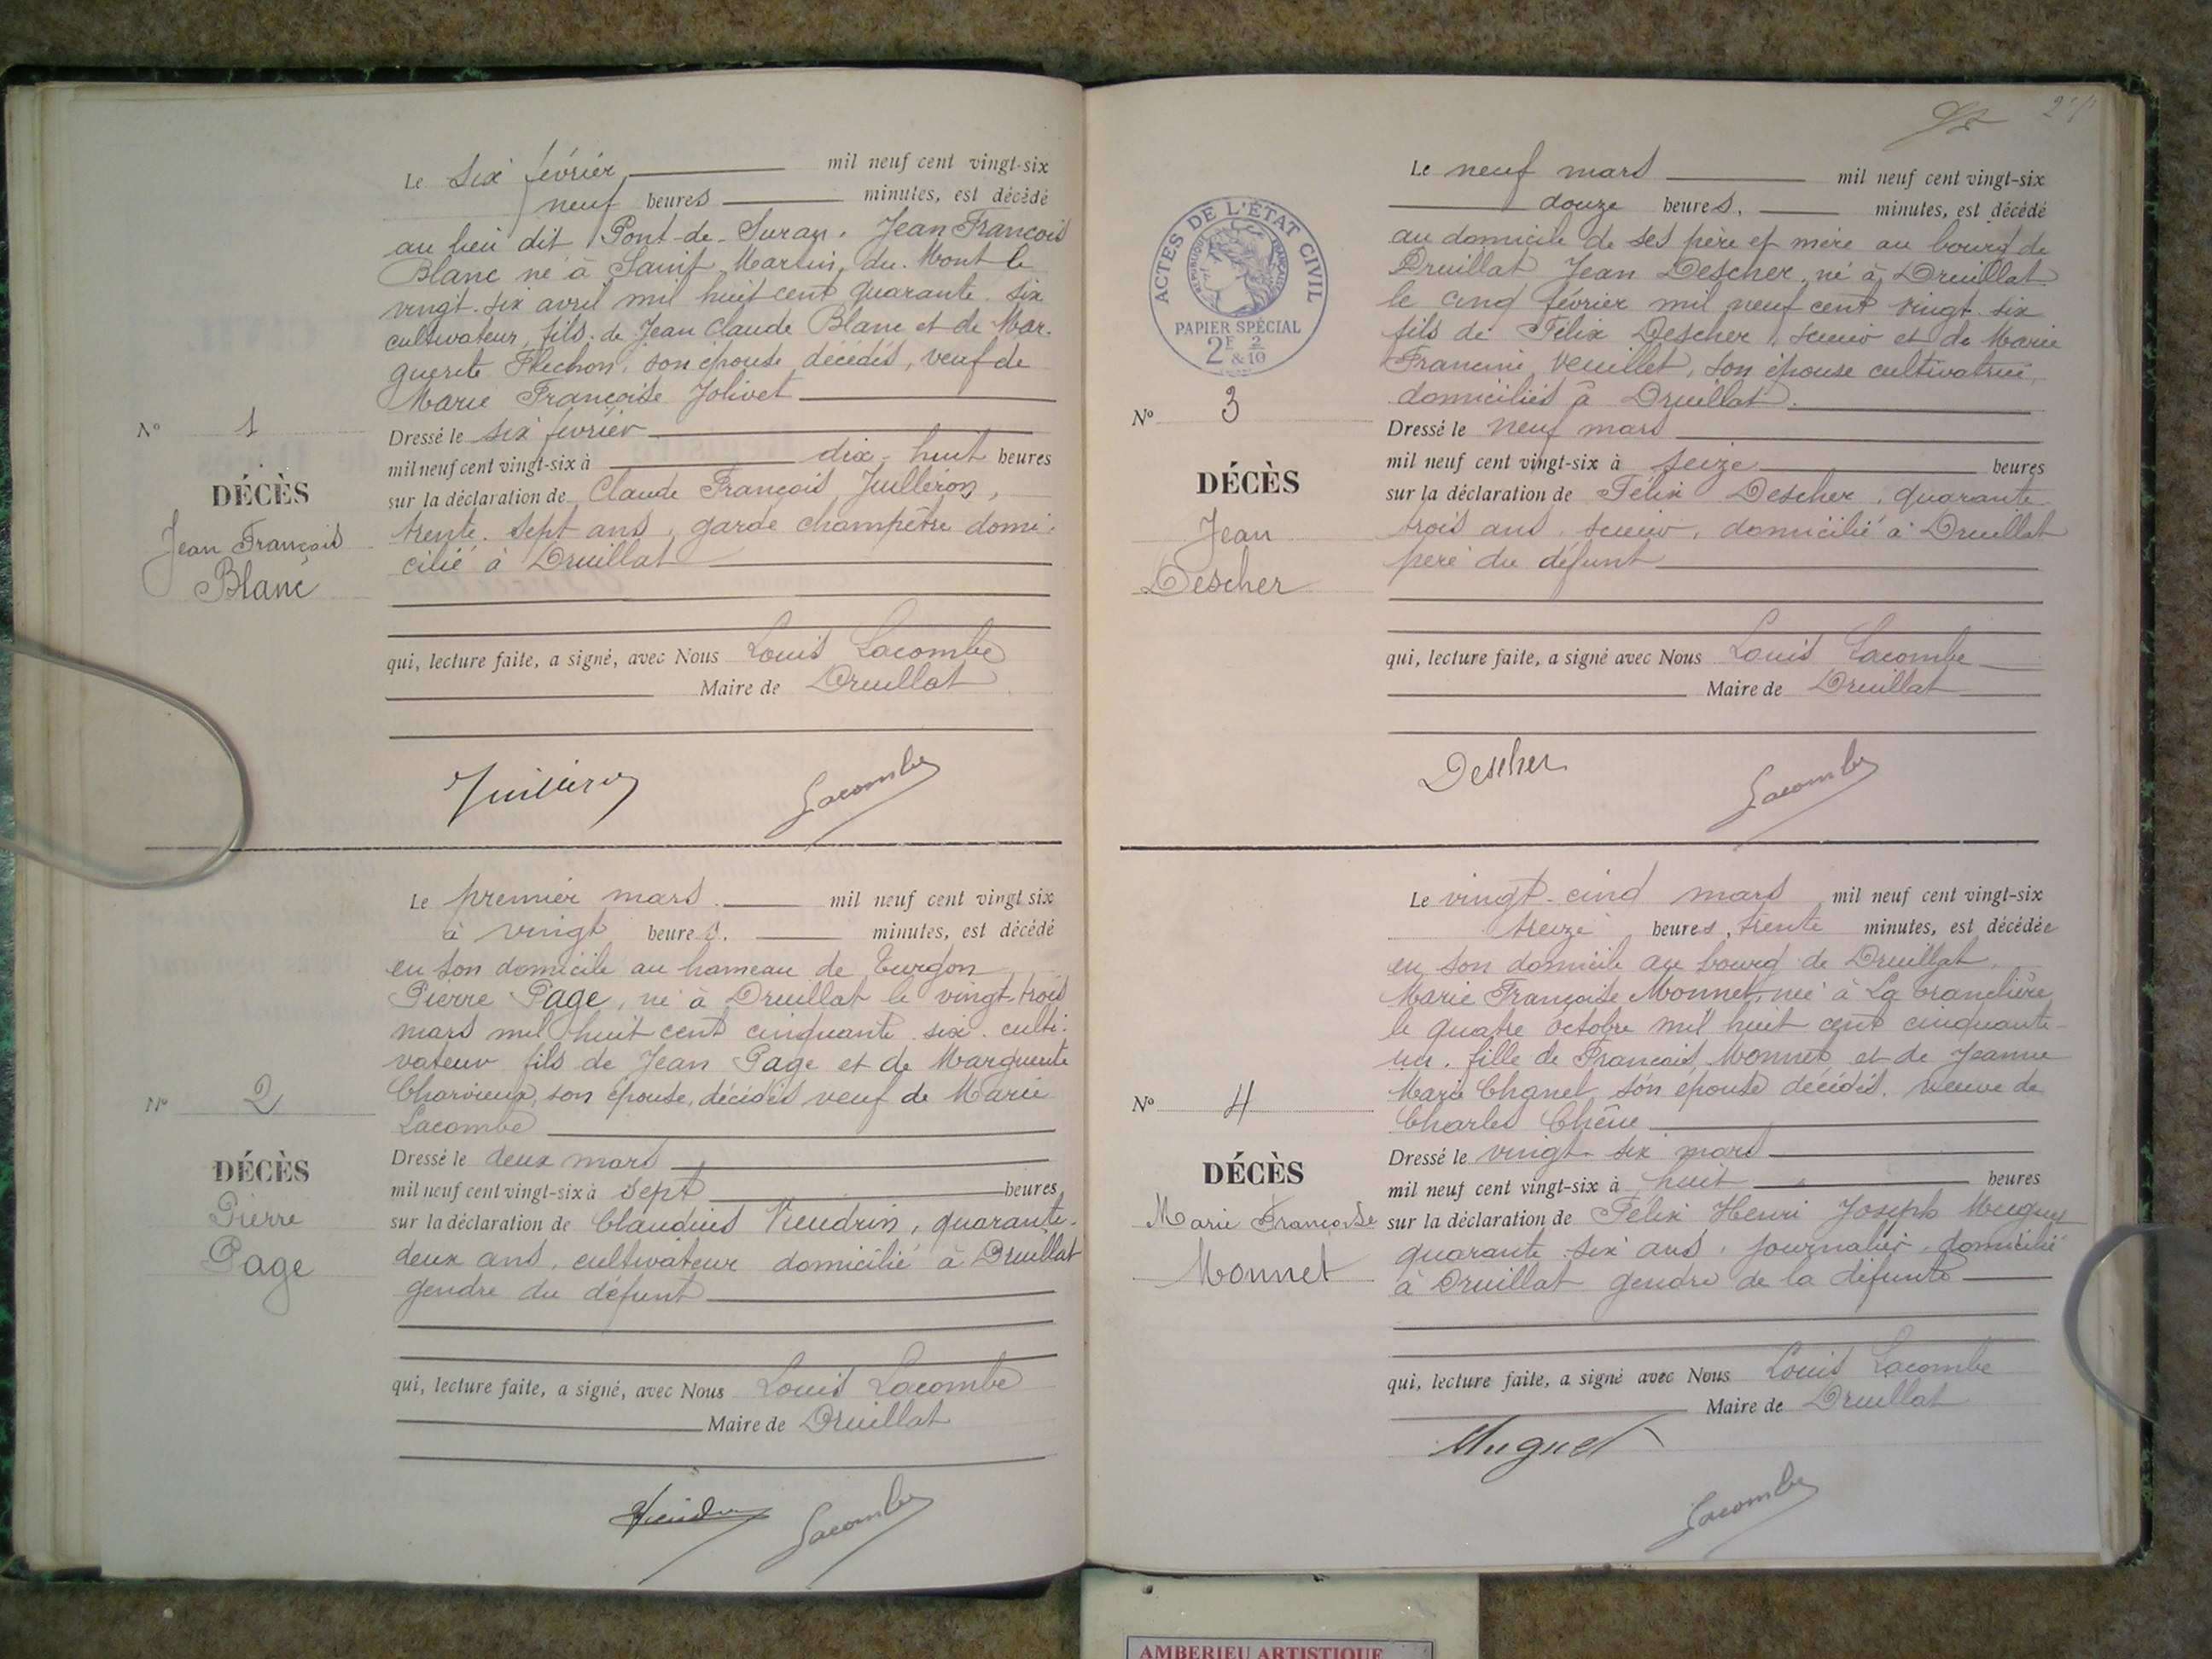 Le six février mil neuf cent vingt-six
neuf heures minutes, est décédé
au lieu dit Pont-de-Suran. Jean François
Blanc né à Saint Martin du Mont le
vingt-six avril mil huit cent quarante six
cultivateur, fils de Jean Claude Blanc et de Mar-
guerite Flechon, son épouse, décédés, veuf de
Marie Françoise Jolivet
Nº 1
Dressé le six février
mil neuf cent vingt-six à dix-huit heures
DÉCÈS
sur la déclaration de Claude François Juilleron,
Jean François
trente-sept ans, garde champêtre domi-
Blanc
cilié à Druillat
qui, lecture faite, a signé, avec Nous Louis Lacombe
Maire de Druillat
Juilleron
Lacombe
Le premier mars mil neuf cent vingt six
à vingt heures. minutes, est décédé
en son domicile au hameau de Turgon
Pierre Page, né à Druillat le vingt-trois
mars mil huit cent cinquante six. culti-
vateur fils de Jean Page et de Marguerite
Charvieux, son épouse, décédés veuf de Marie
Nº 2
Lacombe
Dressé le deux mars
DÉCÈS
mil neuf cent vingt-six à sept heures
Pierre
sur la déclaration de Claudius Vieudrin, quarante-
Page
deux ans, cultivateur domicilié à Druillat
gendre du défunt
qui, lecture faite, a signé, avec Nous Louis Lacombe
Maire de Druillat
Lacombe
ACTES DE L'ÉTAT CIVIL
RÉPUBLIQUE FRANÇAISE
PAPIER SPÉCIAL
2F 2
&10
Le neuf mars mil neuf cent vingt-six
douze heures. minutes, est décédé
au domicile de ses père et mère au bourg de
Druillat Jean Descher, né à Druillat
le cinq février mil neuf cent vingt-six
fils de Félix Descher, scieur et de Marie
Francine Veuillet, son épouse cultivatrice,
domiciliés à Druillat.
Nº 3
Dressé le neuf mars
mil neuf cent vingt-six à seize heures
DÉCÈS
sur la déclaration de Félix Descher, quarante
Jean
trois ans, scieur, domicilié à Druillat
Descher
père du défunt
qui, lecture faite, a signé avec Nous Louis Lacombe
Maire de Druillat
Descher
Lacombe
Le vingt-cinq mars mil neuf cent vingt-six
treize heures, trente minutes, est décédée
en son domicile au bourg de Druillat,
Marie Françoise Monnet, née à La Tranclière
le quatre octobre mil huit cent cinquante-
un. fille de François Monnet et de Jeanne
Marie Chanel, son épouse décédés. veuve de
Nº 4
Charles Chêne
Dressé le vingt-six mars
DÉCÈS
mil neuf cent vingt-six à huit heures
Marie Françoise
sur la déclaration de Félix Henri Joseph Muguet
Monnet
quarante-six ans, journalier, domicilié
à Druillat gendre de la défunte
qui, lecture faite, a signé avec Nous Louis Lacombe
Maire de Druillat
Muguet
Lacombe
AMBERIEU ARTISTIQUE